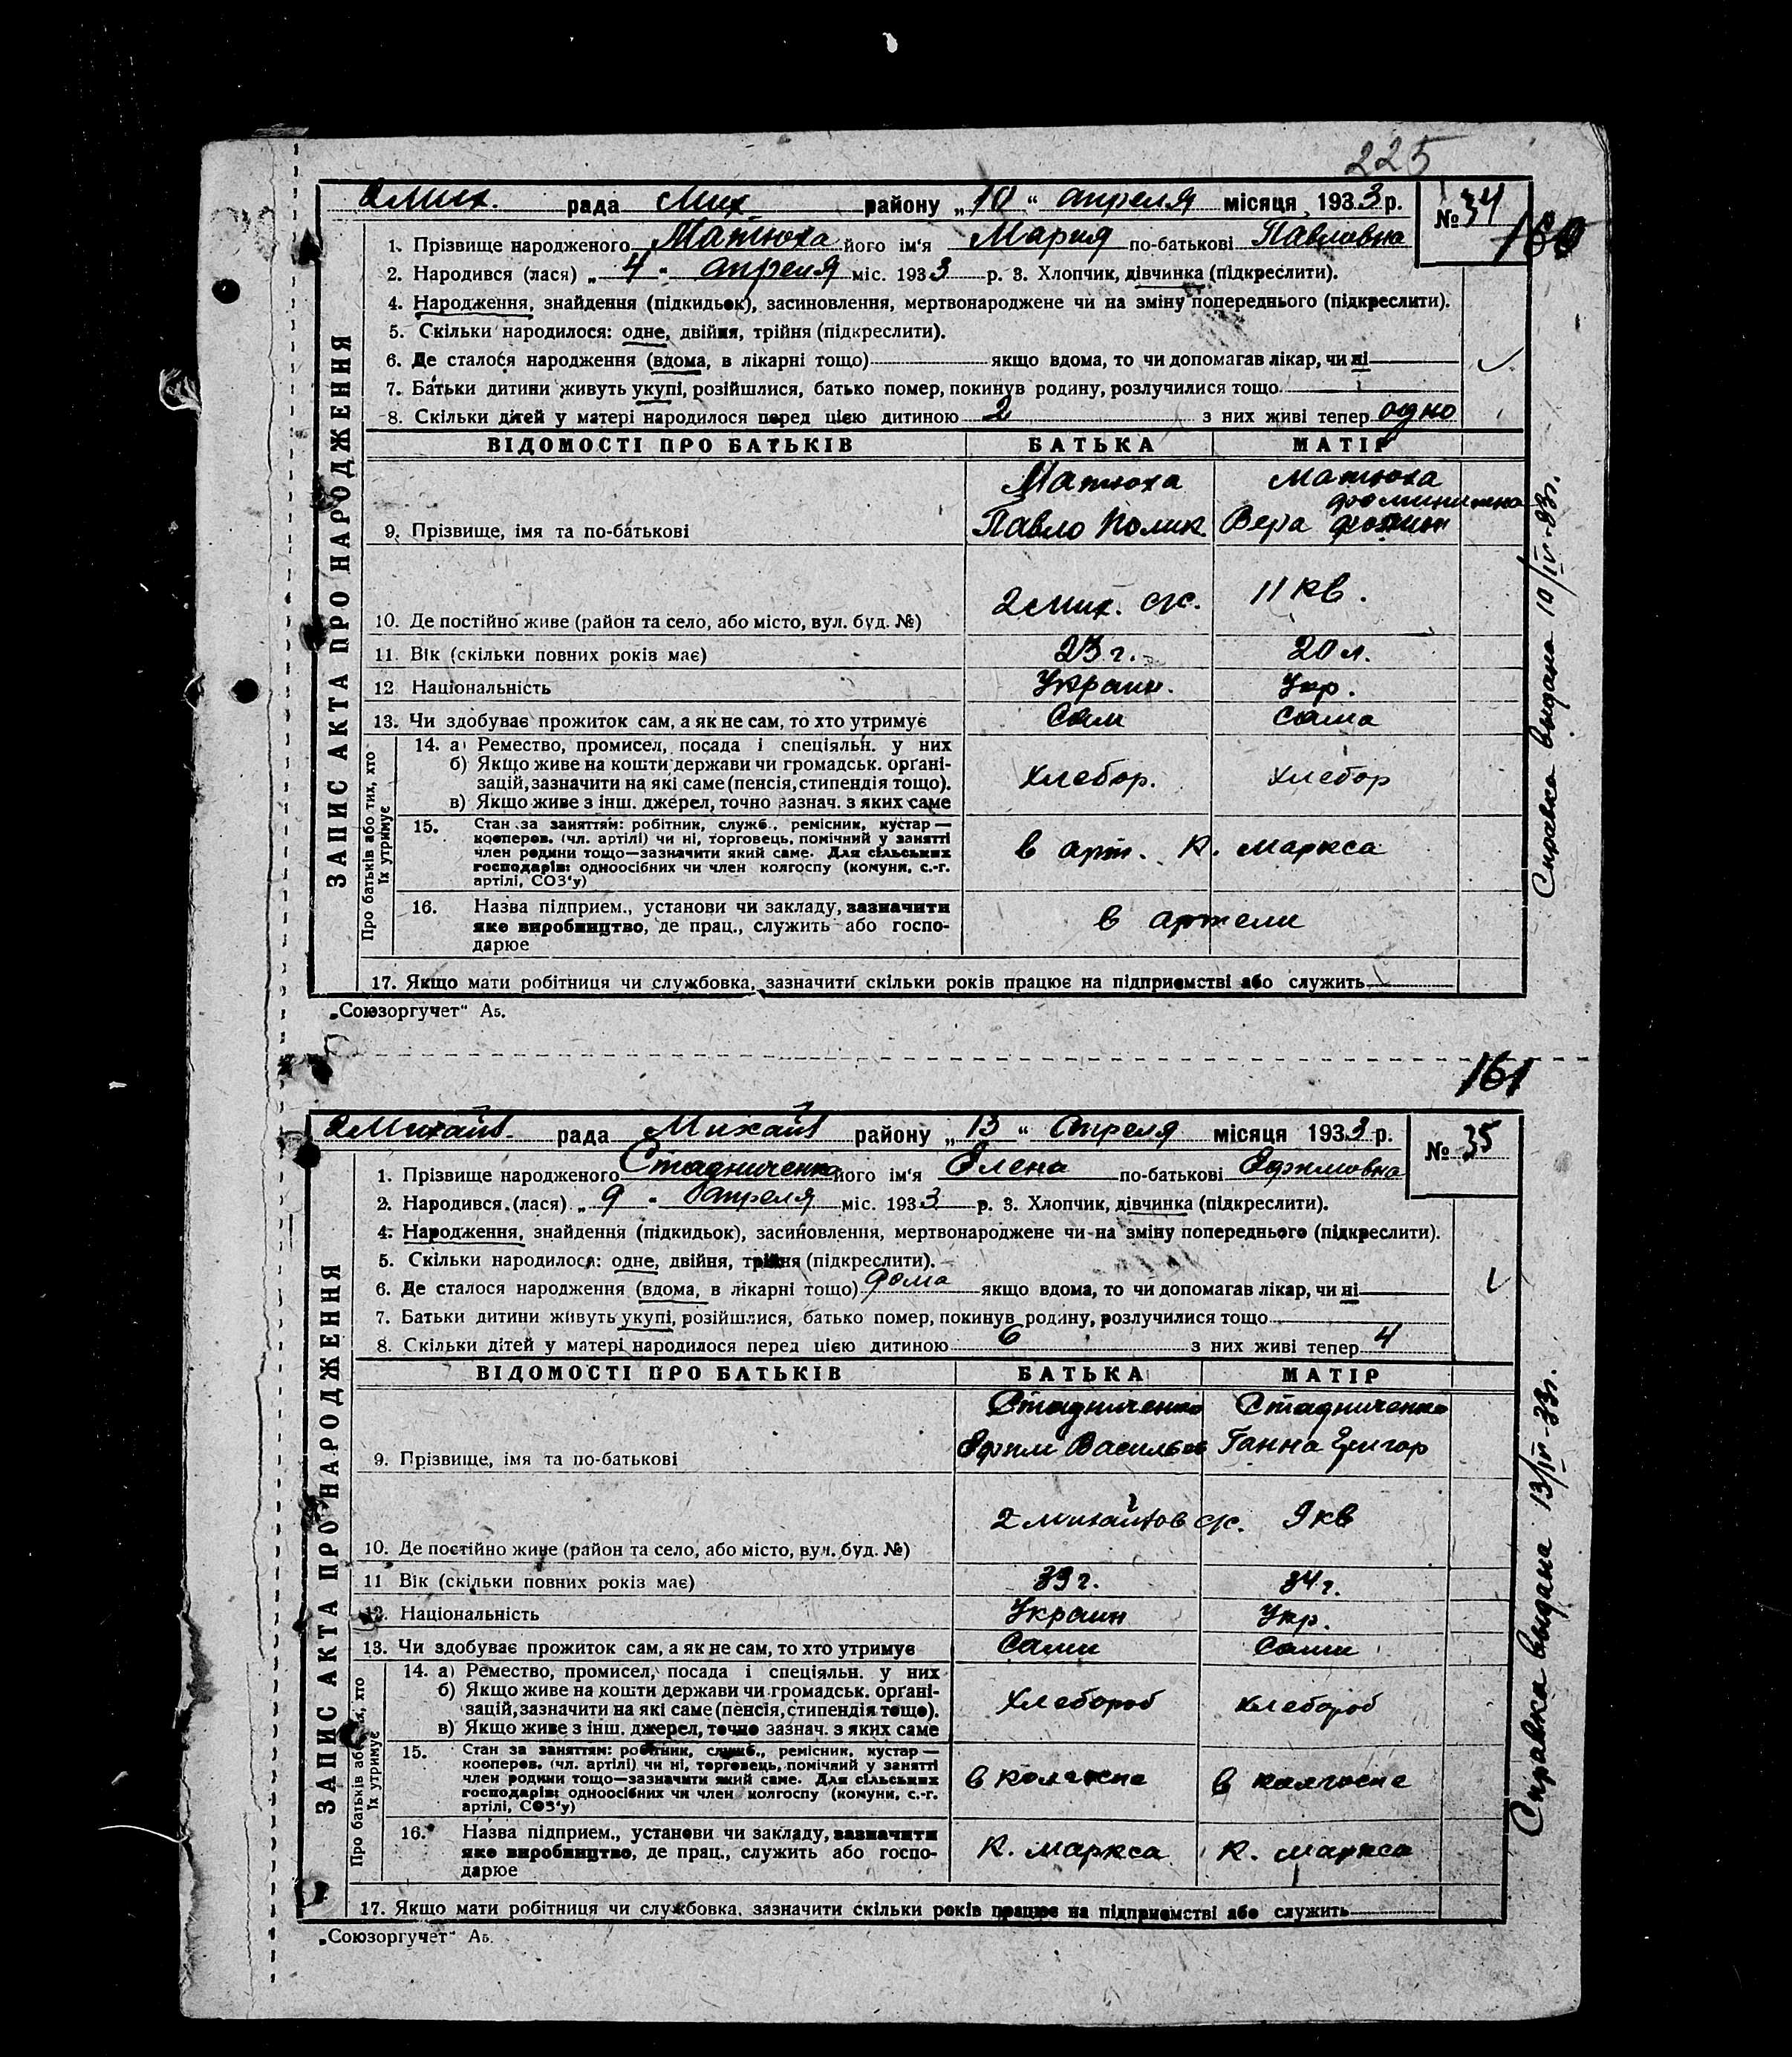 225
2 Мих. рада Мих району „10“ апреля місяця 1933 р. № 34
160
1. Прізвище народженого Матюха його ім'я Мария по-батькові Павловна
2. Народився (лася) „4“ апреля міс. 1933 р. 3. Хлопчик, дівчинка (підкреслити).
4. Народження, знайдення (підкидьок), засиновлення, мертвонароджене чи на зміну попереднього (підкреслити).
5. Скільки народилося: одне, двійня, трійня (підкреслити).
6. Де сталося народження (вдома, в лікарні тощо) якщо вдома, то чи допомагав лікар, чи ні
7. Батьки дитини живуть укупі, розійшлися, батько помер, покинув родину, розлучилися тощо
8. Скільки дітей у матері народилося перед цією дитиною 2 з них живі тепер одно
ЗАПИС АКТА ПРО НАРОДЖЕННЯ
ВІДОМОСТІ ПРО БАТЬКІВ БАТЬКА МАТІР
Матюха Матюха
9. Прізвище, імя та по-батькові Павло Полик. Вера
10. Де постійно живе (район та село, або місто, вул. буд. №) 2 Мих. с/с. 11 кв.
11. Вік (скільки повних років має) 23 г. 20 л.
12 Національність Украин. Укр.
13. Чи здобуває прожиток сам, а як не сам, то хто утримує Сам сама
Про батьків або тих, хто їх утримує
14. а) Ремество, промисел, посада і спеціяльн. у них
б) Якщо живе на кошти держави чи громадськ. органі-
зацій, зазначити на які саме (пенсія, стипендія тощо). хлебор. хлебор
в) Якщо живе з інш. джерел, точно зазнач. з яких саме
15. Стан за заняттям: робітник, служб., ремісник, кустар —
кооперов. (чл. артілі) чи ні, торговець, помічний у занятті
член родини тощо—зазначити який саме. Для сільських в арт. К. Маркса
господарів: одноосібних чи член колгоспу (комуни, с.-г.
артілі, СОЗ'у)
16. Назва підприєм., установи чи закладу, зазначити
яке виробництво, де прац., служить або госпо- в артели
дарює
17. Якщо мати робітниця чи службовка, зазначити скільки років працює на підприємстві або служить
Справка выдана 10/IV-33г.
„Союзоргучет“ А5.
161
2 Михайл. рада Михайл району „13“ Апреля місяця 1933 р. № 35
1. Прізвище народженого Стадниченко його ім'я Елена по-батькові Ефимовна
2. Народився (лася) „9“ Апреля міс. 1933 р. 3. Хлопчик, дівчинка (підкреслити).
4. Народження, знайдення (підкидьок), засиновлення, мертвонароджене чи на зміну попереднього (підкреслити).
5. Скільки народилося: одне, двійня, трійня (підкреслити).
6. Де сталося народження (вдома, в лікарні тощо) дома якщо вдома, то чи допомагав лікар, чи ні
7. Батьки дитини живуть укупі, розійшлися, батько помер, покинув родину, розлучилися тощо
8. Скільки дітей у матері народилося перед цією дитиною 6 з них живі тепер 4
ЗАПИС АКТА ПРО НАРОДЖЕННЯ
ВІДОМОСТІ ПРО БАТЬКІВ БАТЬКА МАТІР
Стадниченко Стадниченко
9. Прізвище, імя та по-батькові Ефим Васильев Ганна Григор
10. Де постійно живе (район та село, або місто, вул. буд. №) 2 Михайлов с/с. 9 кв
11 Вік (скільки повних років має) 39 г. 34 г.
12. Національність Украин Укр.
13. Чи здобуває прожиток сам, а як не сам, то хто утримує Сами сами
Про батьків або тих, хто їх утримує
14. а) Ремество, промисел, посада і спеціяльн. у них
б) Якщо живе на кошти держави чи громадськ. органі-
зацій, зазначити на які саме (пенсія, стипендія тощо). Хлебороб хлебороб
в) Якщо живе з інш. джерел, точно зазнач. з яких саме
15. Стан за заняттям: робітник, служб., ремісник, кустар —
кооперов. (чл. артілі) чи ні, торговець, помічний у занятті
член родини тощо—зазначити який саме. Для сільських в колгоспе в колгоспе
господарів: одноосібних чи член колгоспу (комуни, с.-г.
артілі, СОЗ'у)
16. Назва підприєм., установи чи закладу, зазначити
яке виробництво, де прац., служить або госпо- К. Маркса К. Маркса
дарює
17. Якщо мати робітниця чи службовка, зазначити скільки років працює на підприємстві або служить
Справка выдана 13/IV-33г.
„Союзоргучет“ А5.